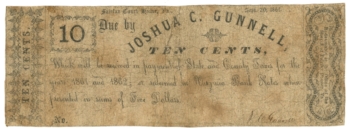 Fairfax Court House, Va. Sept. 20, 1861
10
Due by JOSHUA C. GUNNELL,
TEN CENTS,
Which will be received in payment of State and County Taxes for the
years 1861 and 1862, or redeemed in Virginia Bank Notes when
presented in sums of Five Dollars.
No.
TEN CENTS.